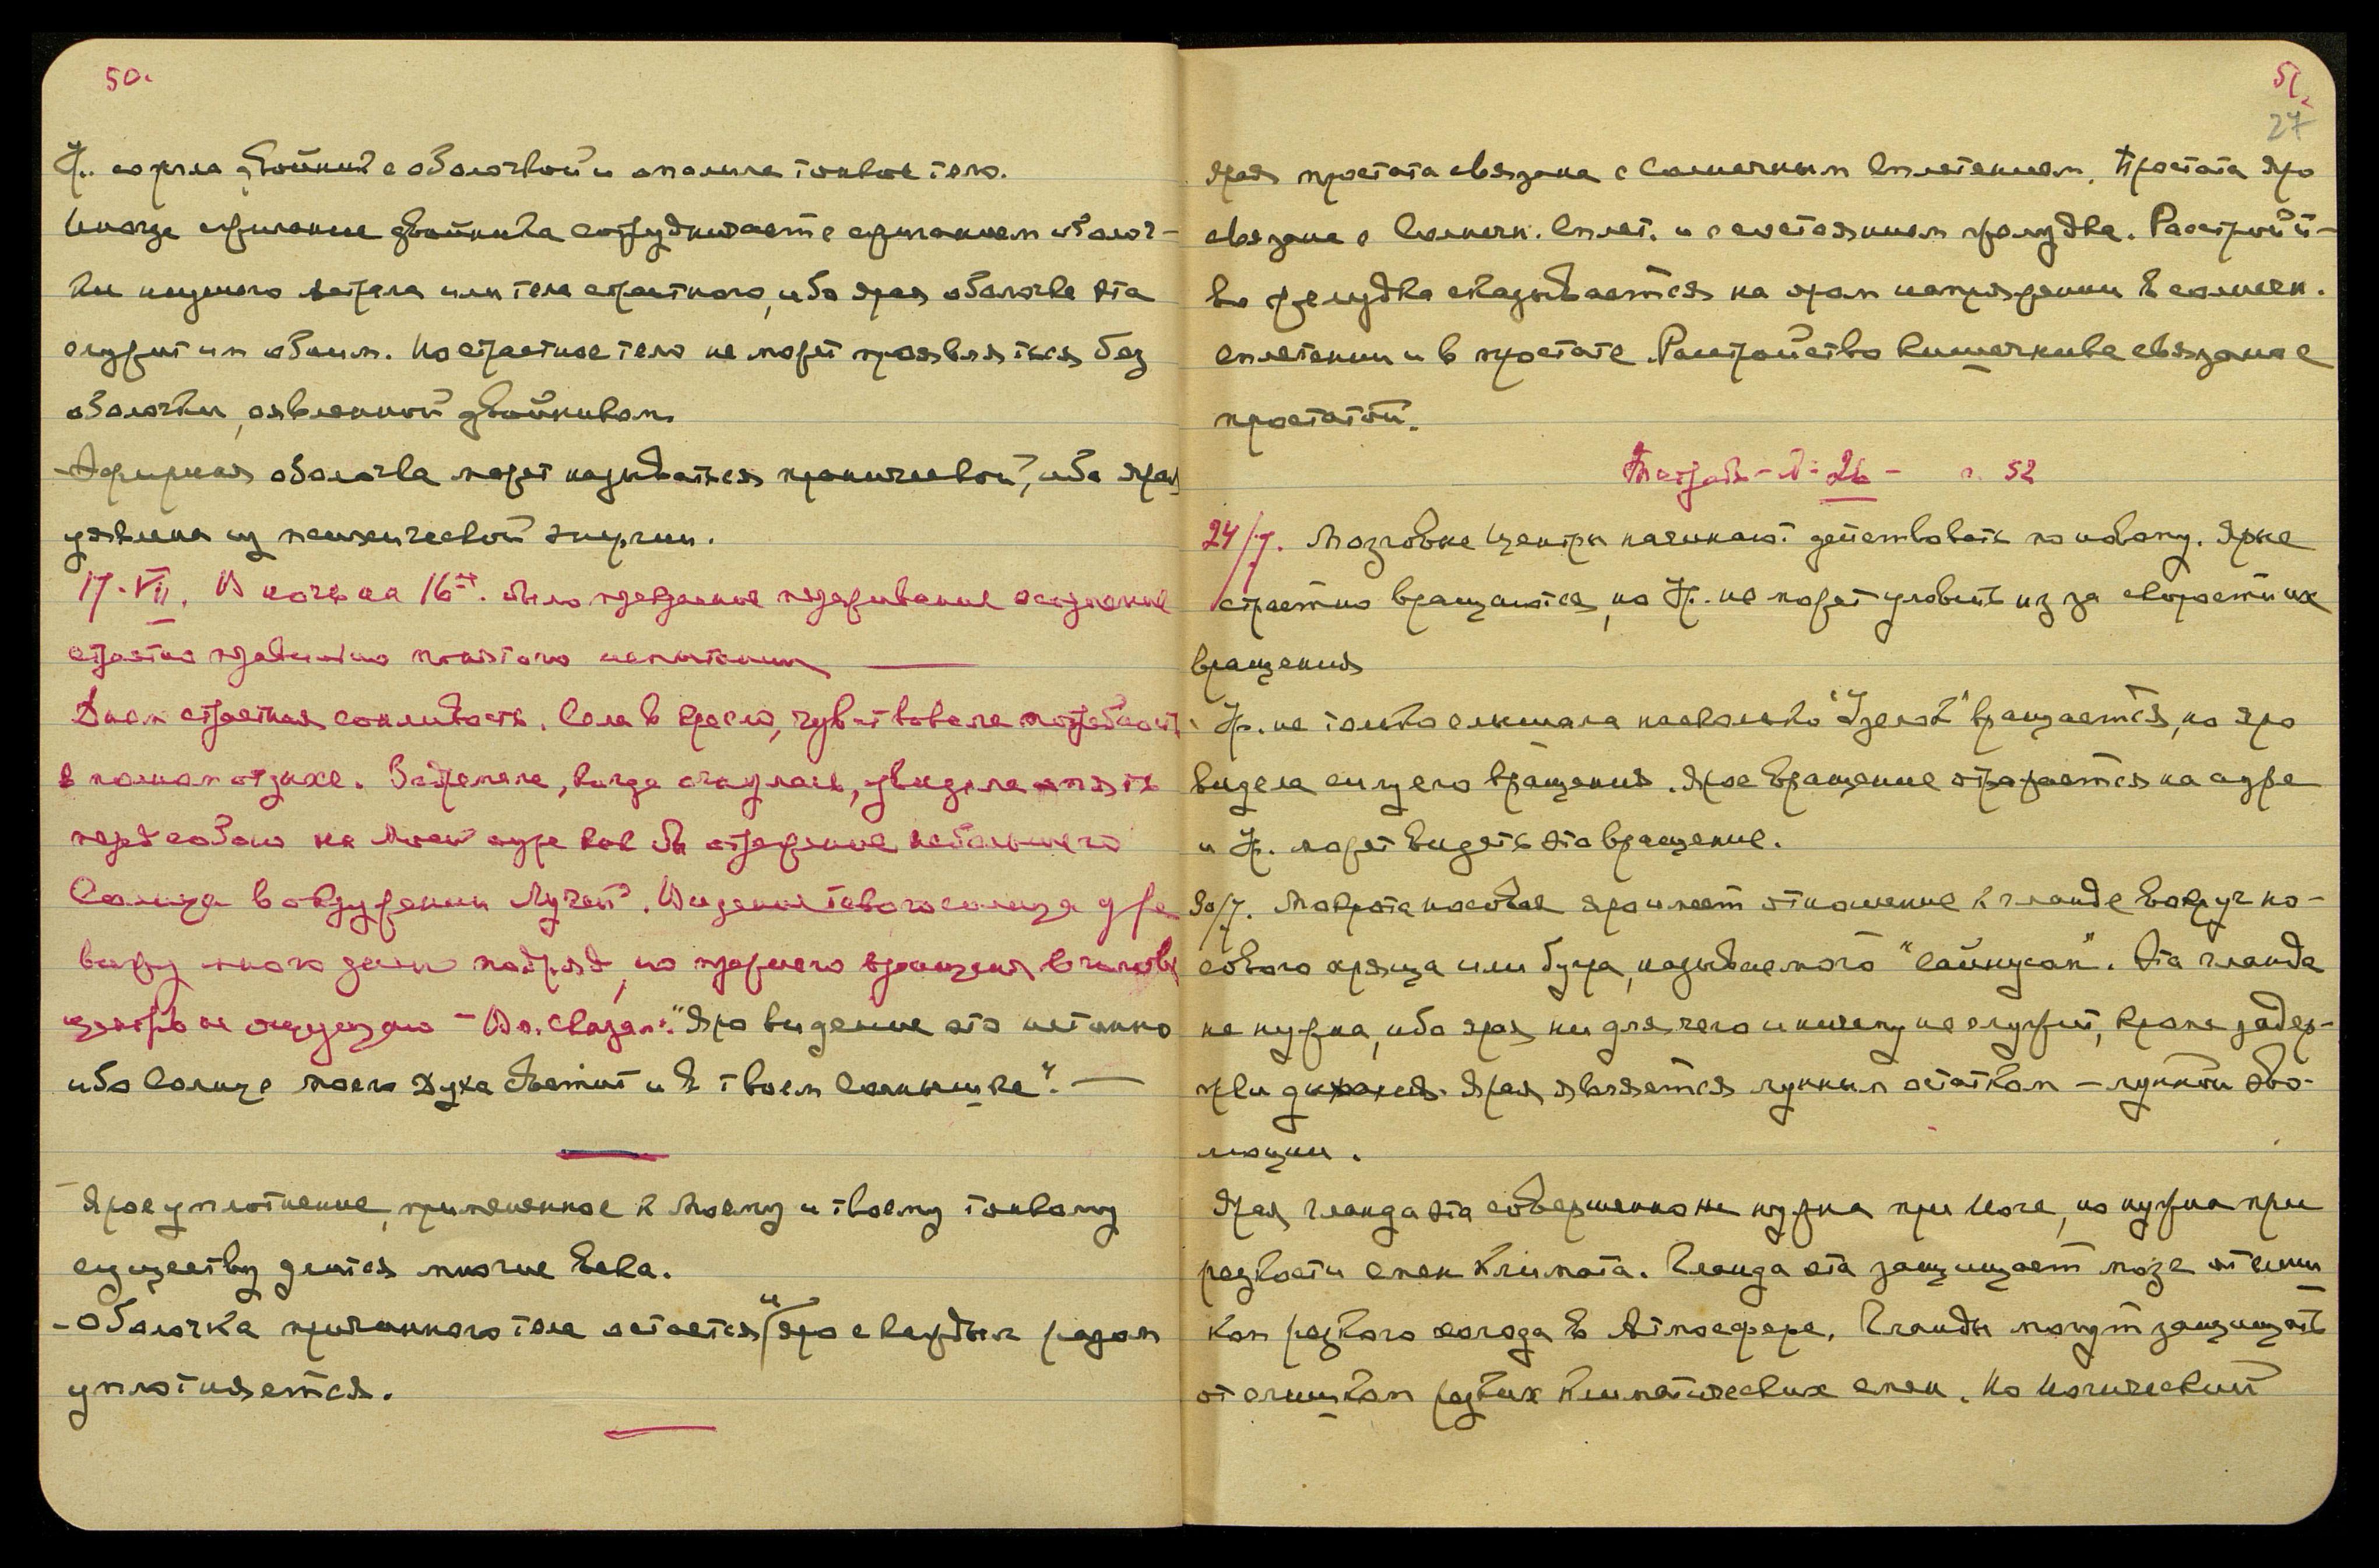 50.
Ур. сожгла двойник с оболочкой и опалила тонкое тело.
Иногда сжигание двойника сотрудничает с сжиганием оболоч-
ки низшего астрала или тела страстного, ибо ярая оболочка эта
служит им обоим. Но страстное тело не может проявляться без
оболочки, явленной двойником.
Эфирная оболочка может называться пранической, ибо ярая
уявлена из психической энергии.
17.VII. В ночь на 16ое. было
страстно
Днем страстная сонливость. Села в кресло, чувствовала потребность
в полном отдыхе. Задремала, когда очнулась, увидела опять
перед собою на Моей ауре как бы отражение небольшого
Солнца в окружении Лучей. Видение такого солнца уже
вижу много дней подряд, но прежнего вращения в
центров не ощущаю – Вл. Сказал: "Яро видение это истинно
ибо Солнце моего Духа светит и в твоем Солнышке". —
Ярое уплотнение, примененное к Моему и твоему тонкому
существу длится многие века.
- Оболочка причинного тела остается и яро с каждым разом
уплотняется.
51.
27
Ярая простата связана с Солнечным Сплетением. Простата яро
связана с Солнечн. Сплет. и с состоянием желудка. Расстройст-
во желудка сказывается на яром напряжении в солнечн.
сплетении и в простате. Расстройство кишечника связано с
простатой.
Тетрадь – 26 – с. 52
24/7. Мозговые центры начинают действовать по новому. Ярые
страстно вращаются, но Ур. не может уловить из за скорости их
вращения
Ур. не только слышала насколько "Узелок" вращается, но яро
видела силу его вращения. Ярое вращение отражается на ауре
и Ур. может видеть это вращение.
30/7. Мокрота носовая яро имеет отношение к гланде вокруг но-
сового хряща или бугра, называемого "сайнусом". Эта гланда
не нужна, ибо ярая ни для чего иному не служит, кроме задер-
жки дыхания. Ярая является лунным остатком – лунной эво-
люции.
Ярая гланда эта совершенно не нужна при Йоге, но нужна при
резкости смен климата. Гланда эта защищает мозг от слиш
ком резкого холода в Атмосфере. Гланды могут защищать
от слишком резких климатических смен. Но Йогический